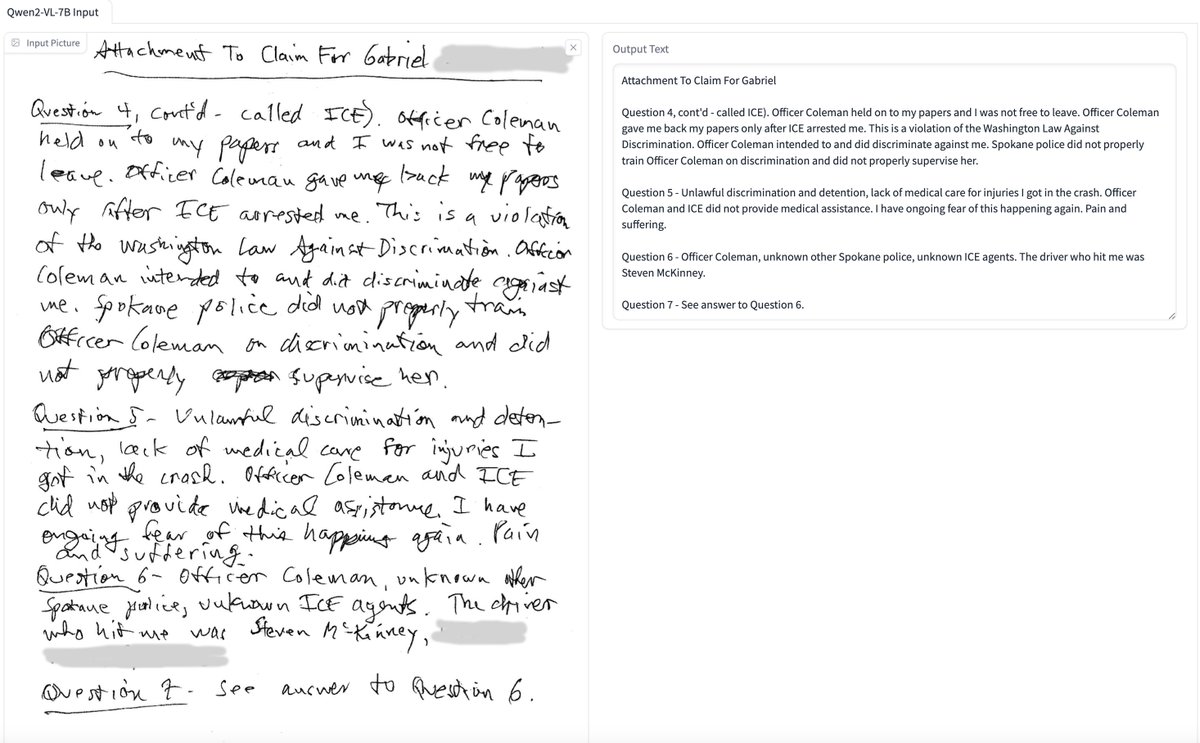 Qwen2-VL-7B Input
Input Picture
Attachment To Claim For Gabriel
Question 4, cont'd - called ICE). Officer Coleman
held on to my papers and I was not free to
leave. Officer Coleman gave me back my papers
only after ICE arrested me. This is a violation
of the Washington Law Against Discrimation. Officer
Coleman intended to and did discriminate against
me. Spokane police did not properly train
Officer Coleman on discrimination and did
not properly supervise her.
Question 5 - Unlawful discrimination and deten-
tion, lack of medical care for injuries I
got in the crash. Officer Coleman and ICE
did not provide medical assistance. I have
ongoing fear of this happening again. Pain
and suffering.
Question 6 - Officer Coleman, unknown other
Spokane police, unknown ICE agents. The driver
who hit me was Steven McKinney,
Question 7 - See answer to Question 6.
Output Text
Attachment To Claim For Gabriel
Question 4, cont'd - called ICE). Officer Coleman held on to my papers and I was not free to leave. Officer Coleman
gave me back my papers only after ICE arrested me. This is a violation of the Washington Law Against
Discrimination. Officer Coleman intended to and did discriminate against me. Spokane police did not properly
train Officer Coleman on discrimination and did not properly supervise her.
Question 5 - Unlawful discrimination and detention, lack of medical care for injuries I got in the crash. Officer
Coleman and ICE did not provide medical assistance. I have ongoing fear of this happening again. Pain and
suffering.
Question 6 - Officer Coleman, unknown other Spokane police, unknown ICE agents. The driver who hit me was
Steven McKinney.
Question 7 - See answer to Question 6.